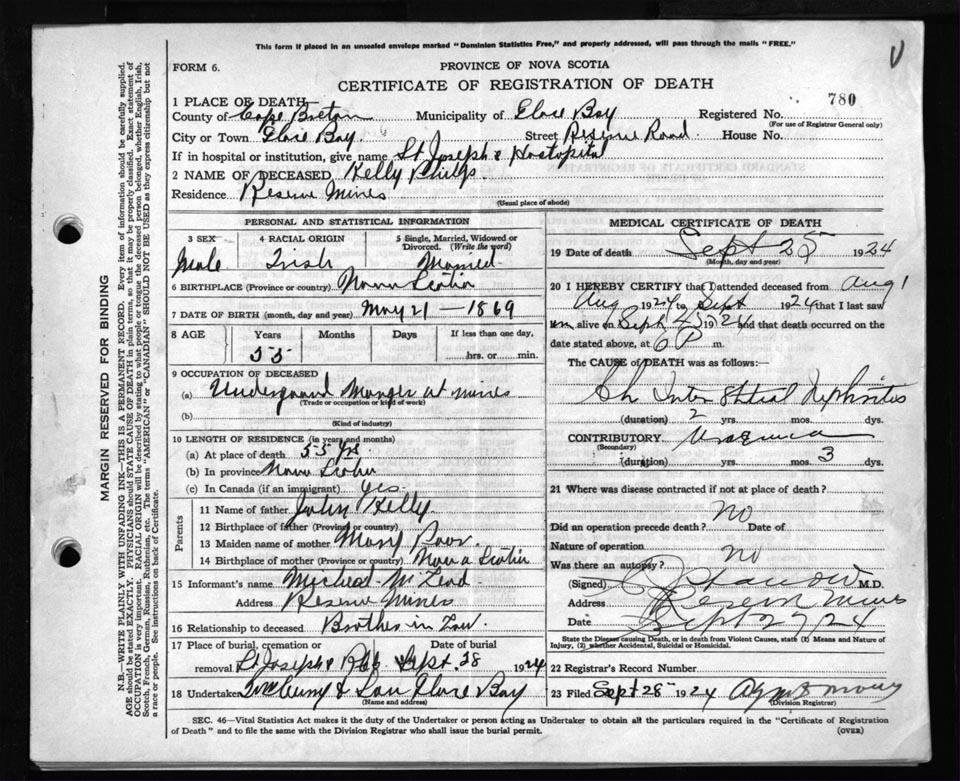 This form if placed in an unsealed envelope marked "Dominion Statistics Free," and properly addressed, will pass through the mails "FREE."
V
FORM 6.
PROVINCE OF NOVA SCOTIA
CERTIFICATE OF REGISTRATION OF DEATH
780
1 PLACE OF DEATH
County of Cape Breton Municipality of Glace Bay Registered No.
(For use of Registrar General only)
City or Town Glace Bay Street Reserve Road House No.
If in hospital or institution, give name St Joseph's Hostopital
2 NAME OF DECEASED Kelly
Residence Reserve Mines
(Usual place of abode)
PERSONAL AND STATISTICAL INFORMATION
3 SEX 4 RACIAL ORIGIN 5 Single, Married, Widowed or Divorced. (Write the word)
Male Irish Married
6 BIRTHPLACE (Province or country) Nova Scotia
7 DATE OF BIRTH (month, day and year) May 21 — 1869
8 AGE Years Months Days If less than one day,
55 hrs. or min.
9 OCCUPATION OF DECEASED
(a) Underground Manger at mines
(Trade or occupation or kind of work)
(b)
(Kind of industry)
10 LENGTH OF RESIDENCE (in years and months)
(a) At place of death 55 yrs
(b) In province Nova Scotia
(c) In Canada (if an immigrant) yes
Parents
11 Name of father John Kelly
12 Birthplace of father (Province or country)
13 Maiden name of mother Mary
14 Birthplace of mother (Province or country) Nova Scotia
15 Informant's name Micheal McLeod
Address Reserve Mines
16 Relationship to deceased Brother in Law
17 Place of burial, cremation or removal St Joseph's Sept. 28 1924
18 Undertaker & Son Glace Bay
(Name and address)
MEDICAL CERTIFICATE OF DEATH
19 Date of death Sept 25 1924
(Month, day and year)
20 I HEREBY CERTIFY that I attended deceased from Aug 1
Aug 1924 to Sept 1924 that I last saw
him alive on Sept 1924 and that death occurred on the
date stated above, at 6 P m.
The CAUSE of DEATH was as follows:
Ch Interstitial Nephritis
(duration) 2 yrs. mos. dys.
CONTRIBUTORY Uraemia
(Secondary)
(duration) yrs. mos. 3 dys.
21 Where was disease contracted if not at place of death?
Did an operation precede death? no Date of
Nature of operation
Was there an autopsy? no
(Signed) M.D.
Address Reserve Mines
Date Sept 27 24
State the Disease causing Death, or in death from Violent Causes, state (1) Means and Nature of
Injury, (2) whether Accidental, Suicidal or Homicidal.
22 Registrar's Record Number
23 Filed Sept 28 1924
(Division Registrar)
SEC. 46—Vital Statistics Act makes it the duty of the Undertaker or person acting as Undertaker to obtain all the particulars required in the "Certificate of Registration
of Death" and to file the same with the Division Registrar who shall issue the burial permit.
(OVER)
MARGIN RESERVED FOR BINDING
N.B.—WRITE PLAINLY WITH UNFADING INK—THIS IS A PERMANENT RECORD. Every item of information should be carefully supplied.
AGE should be stated EXACTLY. PHYSICIANS should STATE CAUSE OF DEATH in plain terms, so that it may be properly classified. Exact statement of
OCCUPATION is very important. RACIAL ORIGIN will be described by stating to what people or tongue the deceased person belonged, whether English, Irish,
Scotch, French, German, Russian, Ruthenian, etc. The terms "AMERICAN" or "CANADIAN" SHOULD NOT BE USED as they express citizenship but not
a race or people. See instructions on back of Certificate.